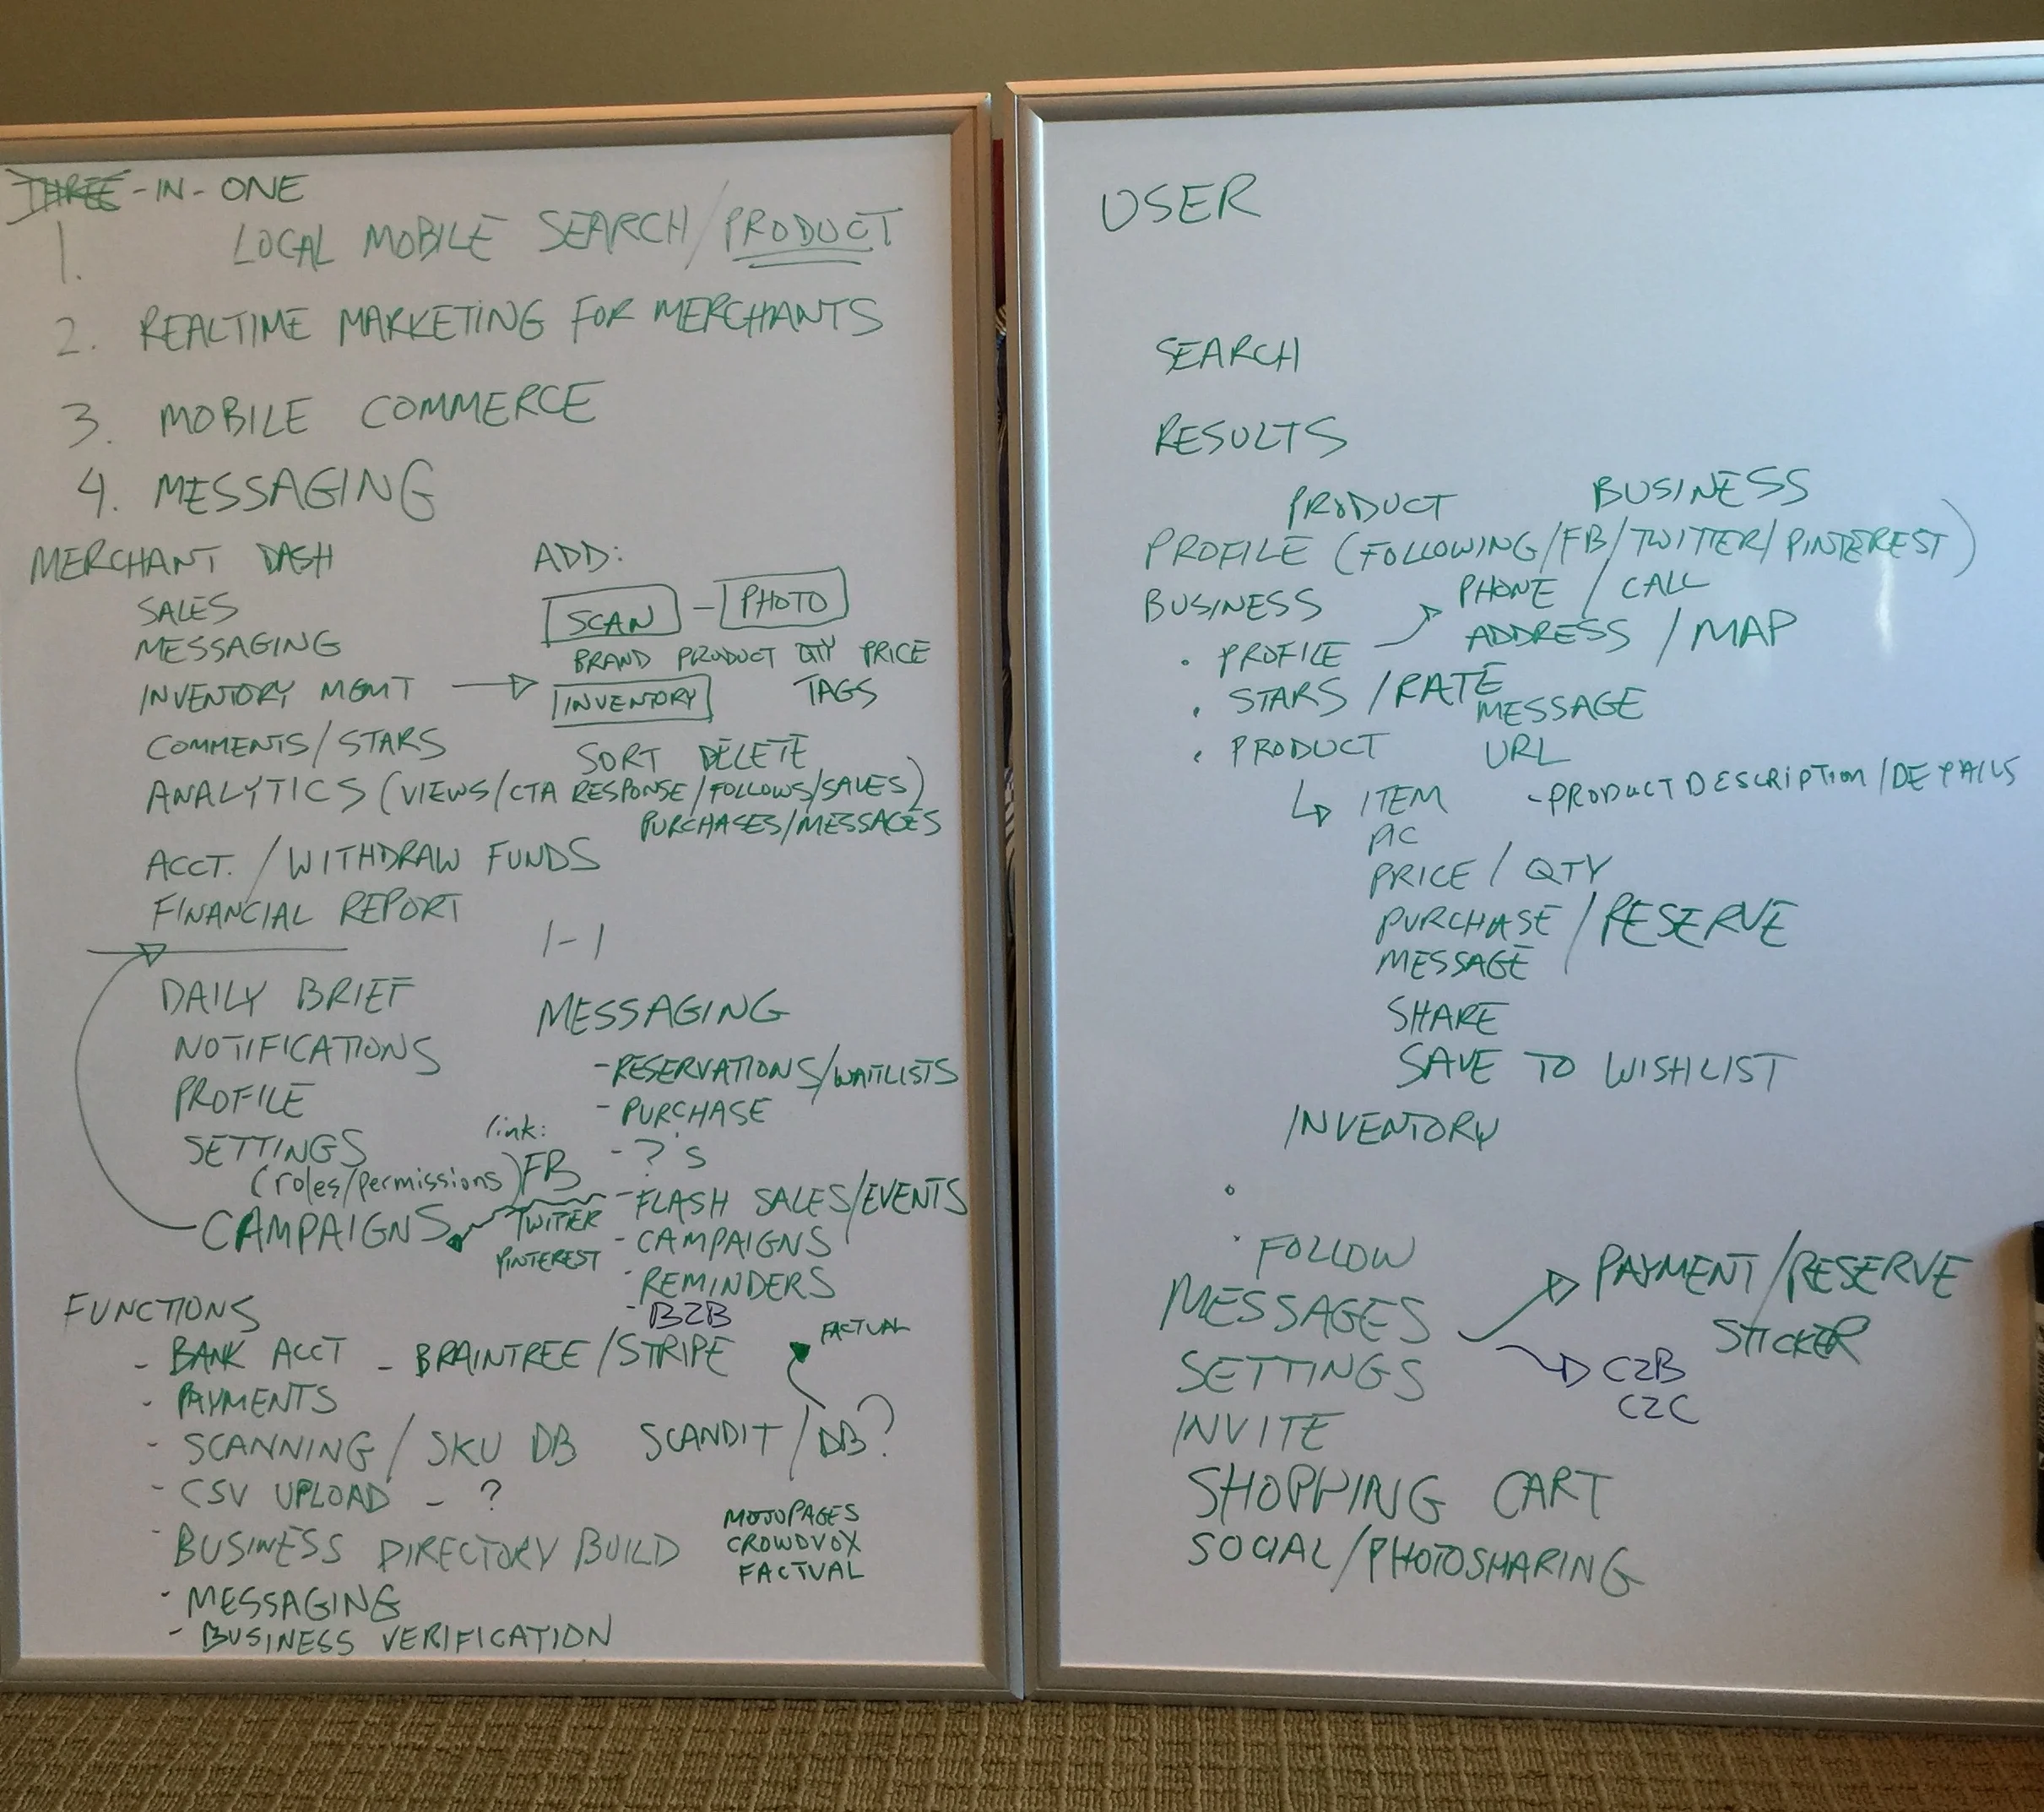 THREE-IN-ONE
1. LOCAL MOBILE SEARCH/PRODUCT
2. REALTIME MARKETING FOR MERCHANTS
3. MOBILE COMMERCE
4. MESSAGING
MERCHANT DASH
SALES
MESSAGING
INVENTORY MGMT
COMMENTS/STARS
ANALYTICS (VIEWS/CTA RESPONSE/FOLLOWS/SALES)
PURCHASES/MESSAGES
ACCT. / WITHDRAW FUNDS
FINANCIAL REPORT
ADD:
SCAN - PHOTO
BRAND PRODUCT QTY PRICE
INVENTORY TAGS
SORT DELETE
DAILY BRIEF
NOTIFICATIONS
PROFILE
SETTINGS
(roles/permissions)
CAMPAIGNS
link:
FB
TWITTER
PINTEREST
1-1
MESSAGING
- RESERVATIONS/WAITLISTS
- PURCHASE
- ?'S
- FLASH SALES/EVENTS
- CAMPAIGNS
- REMINDERS
- B2B
FUNCTIONS
- BANK ACCT - BRAINTREE/STRIPE
- PAYMENTS
- SCANNING/SKU DB SCANDIT/DB?
FACTUAL
- CSV UPLOAD - ?
- BUSINESS DIRECTORY BUILD
MOJOPAGES
CROWDVOX
FACTUAL
- MESSAGING
- BUSINESS VERIFICATION
USER
SEARCH
RESULTS
PRODUCT BUSINESS
PROFILE (FOLLOWING/FB/TWITTER/PINTEREST)
BUSINESS
• PROFILE
PHONE / CALL
ADDRESS / MAP
• STARS /RATE
MESSAGE
• PRODUCT
URL
ITEM - PRODUCT DESCRIPTION/DETAILS
PIC
PRICE / QTY
PURCHASE / RESERVE
MESSAGE
SHARE
SAVE TO WISHLIST
INVENTORY
• FOLLOW
MESSAGES
PAYMENT/RESERVE
STICKER
C2B
C2C
SETTINGS
INVITE
SHOPPING CART
SOCIAL/PHOTOSHARING